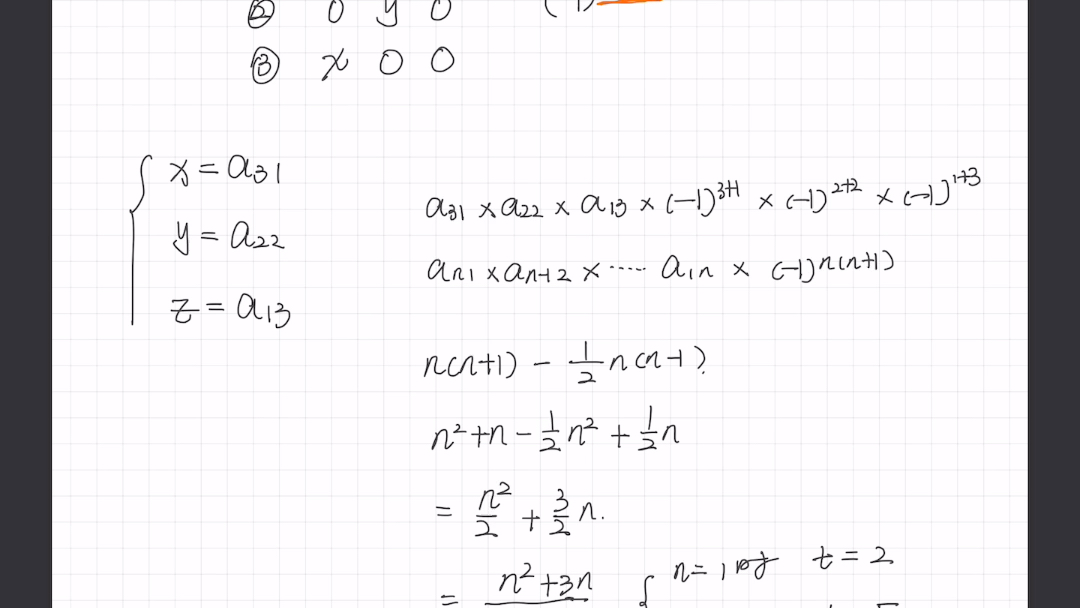 ② 0 y 0
③ x 0 0
x = a₃₁
y = a₂₂
z = a₁₃
a₃₁ × a₂₂ × a₁₃ × (-1)³⁺¹ × (-1)²⁺² × (-1)¹⁺³
aₙ₁ × aₙ₋₁ ₂ × ····· a₁ₙ × (-1)ⁿ⁽ⁿ⁺¹⁾
n(n+1) - 1/2 n(n-1)
n² + n - 1/2 n² + 1/2 n
= n²/2 + 3/2 n.
= n²+3n
n = 1 时 t = 2